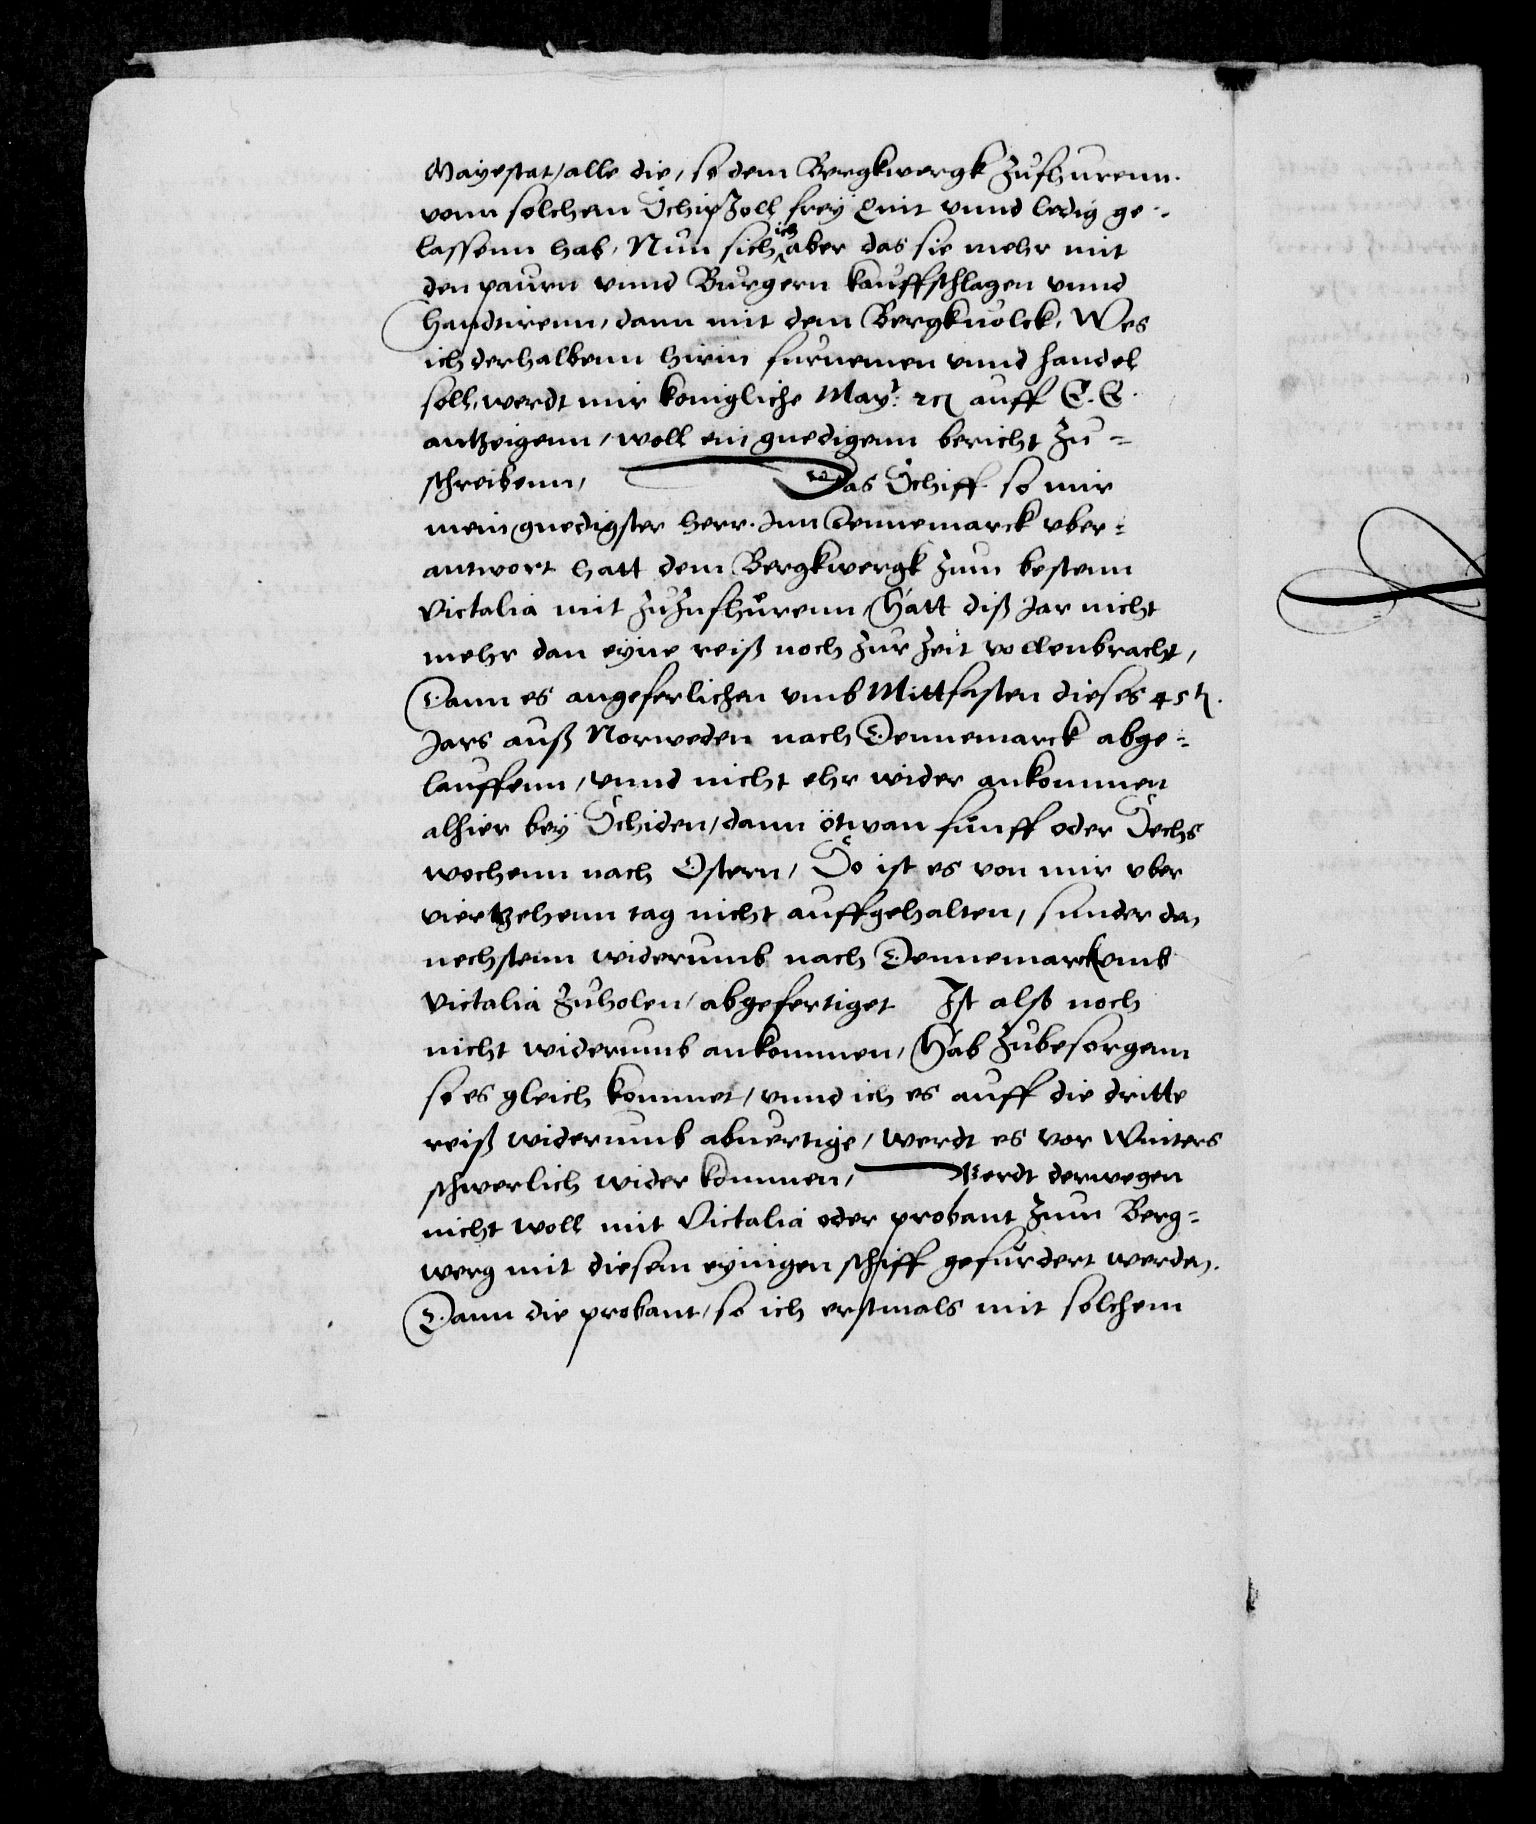 Mayestat, alle die, so dem Bergkwergk zufhurenn.
vonn solchem Schipzoll frey Quit vnnd ledig ge-
lassenn hab, Nun sich ich aber das sie mehr mit
den paurn vnnd Burgern kauffschlagen vnnd
handtirenn, dann mit dem Bergkuolck, Wes
ich derhalbenn hirin furnemen vnnd handel
soll, werdt mir konigliche May: ꝛc auff E. E.
antzeigenn, woll ein gnedigenn bericht zu-
schreibenn, Das Schiff so mir
mein gnedigster herr. Inn Dennemarck vber-
antwort hatt dem Bergkwergk zum bestenn
Victalia mit zuzufhurenn, Hatt diß Jar nicht
mehr dan eyne reiß noch zur zeit vollenbracht,
Dann es angeferlichen vmb Mittfasten dieses 45tn.
Jars auß Norweden nach Dennemarck abge-
lauffenn, vnnd nicht ehr wider ankommen
alhier bey Schiden, dann ötwan funff oder Sechs
wochenn nach Ostern, So ist es von mir vber
viertzehenn tag nicht auffgehalten, sunder den
nechstenn widerumb nach Dennemarck vmb
Victalia zuholen, abgefertiget Ist also noch
nicht widerumb ankommen, Hab zubesorgenn
so es gleich kommet, vnnd ich es auff die dritte
reiß widerumb abuertige, werdt es vor Winters
schwerlich wider kommen, Werdt derwegen
nicht woll mit Victalia oder probant zum Berg-
werg mit diesem eynigen schiff gefurdert werden.
Dann die probant, so ich erstmals mit solchem